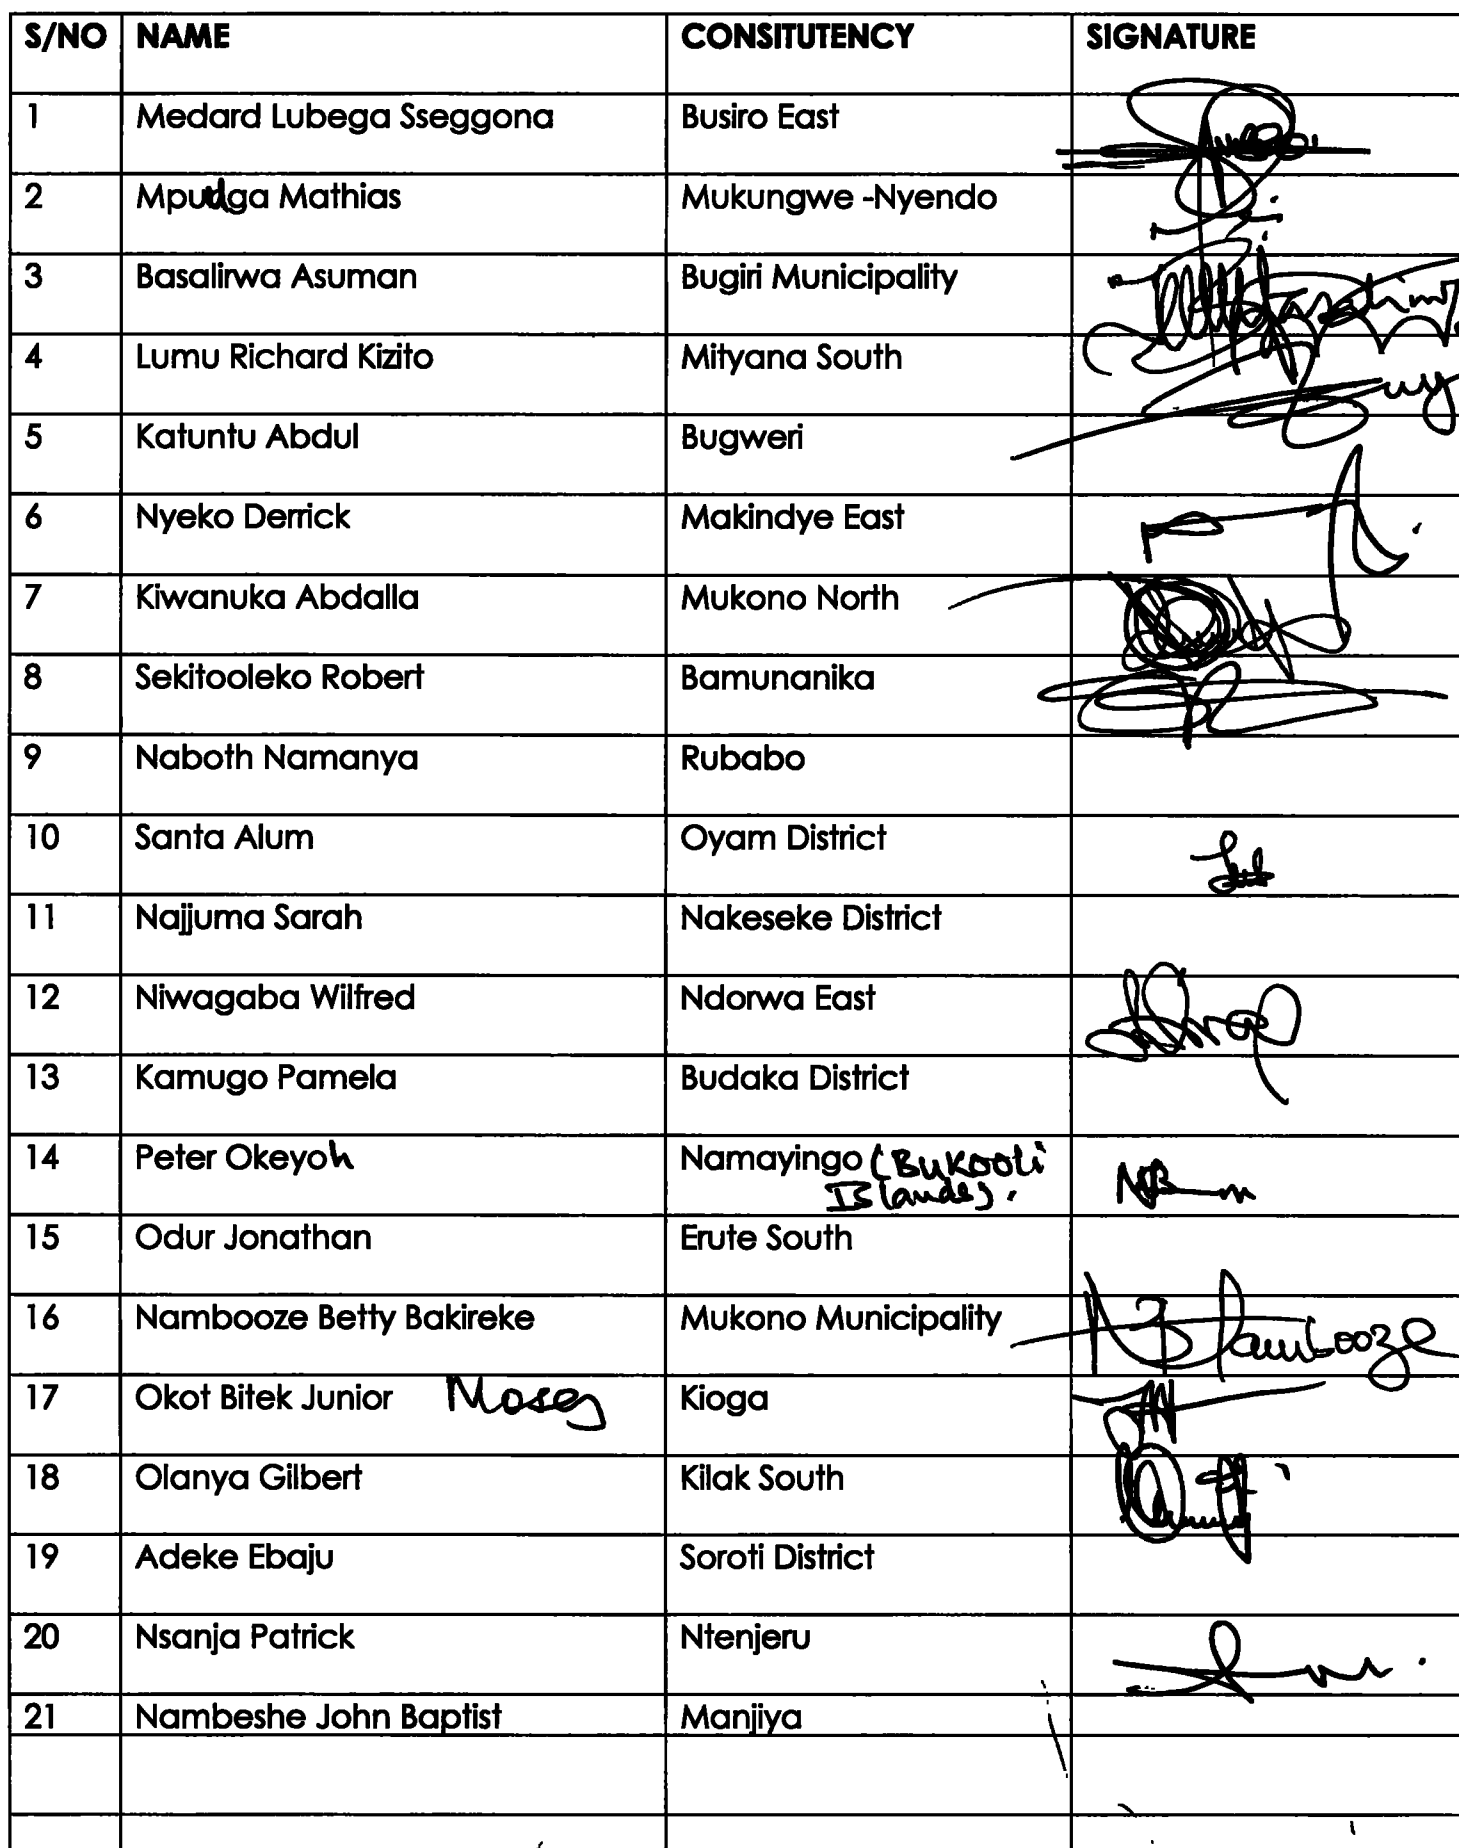 S/NO NAME CONSITUTENCY SIGNATURE
1 Medard Lubega Sseggona Busiro East
2 Mpuuga Mathias Mukungwe -Nyendo
3 Basalirwa Asuman Bugiri Municipality
4 Lumu Richard Kizito Mityana South
5 Katuntu Abdul Bugweri
6 Nyeko Derrick Makindye East
7 Kiwanuka Abdalla Mukono North
8 Sekitooleko Robert Bamunanika
9 Naboth Namanya Rubabo
10 Santa Alum Oyam District
11 Najjuma Sarah Nakeseke District
12 Niwagaba Wilfred Ndorwa East
13 Kamugo Pamela Budaka District
14 Peter Okeyoh Namayingo (Bukooli
Islands).
15 Odur Jonathan Erute South
16 Nambooze Betty Bakireke Mukono Municipality Nambooze
17 Okot Bitek Junior Moses Kioga
18 Olanya Gilbert Kilak South
19 Adeke Ebaju Soroti District
20 Nsanja Patrick Ntenjeru
21 Nambeshe John Baptist Manjiya